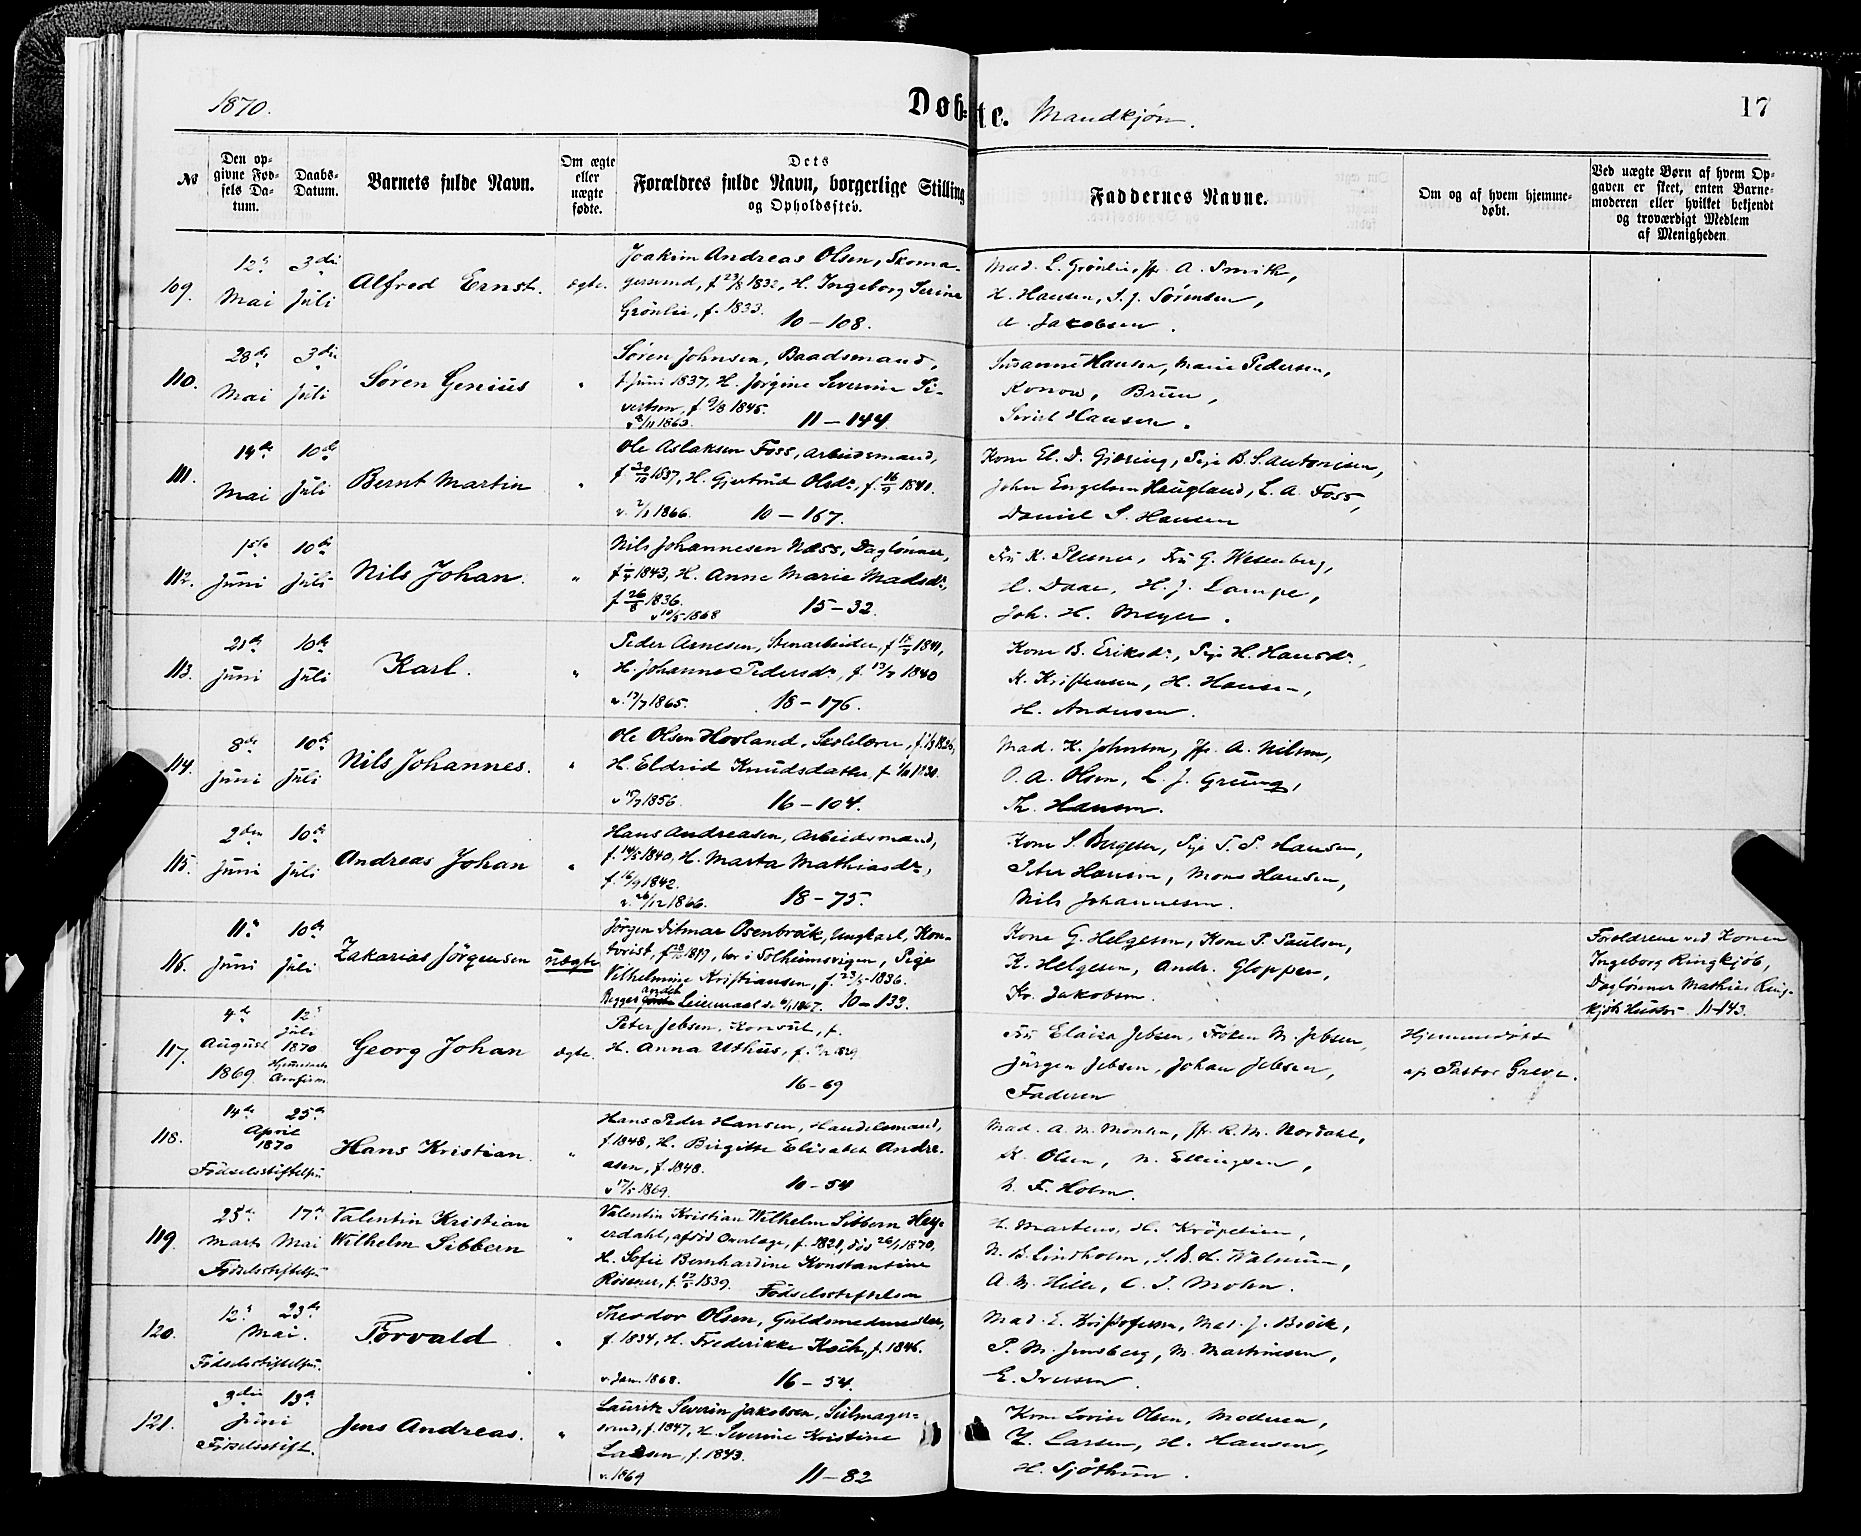 1870.
Døbte. Mandkjøn.
17
No
Den opgivne Fødsels Datum.
Daabs-Datum.
Barnets fulde Navn.
Om ægte eller uægte fødte.
Dets Forældres fulde Navn, borgerlige Stilling og Opholdssted.
Faddernes Navne.
Om og af hvem hjemmedøbt.
Ved uægte Børn af hvem Opgaven er skeet, enten Barnemoderen eller hvilket bekjendt og troværdigt Medlem af Menigheden
109. 12 Mai 3die Juli Alfred Ernst. ægte.
Joakim Andreas Olsen, Skoma-
gersvend, f 23/8 1832, H. Ingeborg Serine
Grönlie, f. 1833.
10 – 108.
Mad. L. Grönlie, Jfr. A. Smith,
H. Hansen, S. J. Sörensen,
A. Jakobsen.
110. 28de Mai 3die Juli Søren Genius "
Søren Johnsen, Baadsmand,
f Juni 1837, H. Jørgine Severine Si-
vertsen, f. 9/8 1845.
11 – 144
Susanne Hansen, Marie Pedersen,
Konow, Bruun,
Sivert Hansen.
111. 14de Mai 10de Juli Bernt Martin "
Ole Aslaksen Foss, Arbeidsmand,
1837, H. Gjertrud Olsdr, f. 1840.
1866. 10 – 167.
Kone El. D. Gjering, Pige B. S. Antonisen,
John Engelsen Haugland, L. A. Foss,
Daniel S. Hansen
112. 1ste Juni 10de Juli Nils Johan. "
Nils Johannesen Næss, Daglønner,
1843, H. Anne Marie Madsdr,
f 26/8 1836.
1868 15 – 32.
Fru K. Plesner, Fru G. Wesenberg,
C. Daae, H. J. Lampe,
Joh. H. Meyer.
113. 21de Juni 10de Juli Karl. "
Peder Arnesen, Stenarbeider, 1841,
H. Johanne Pedersdr, f. 1840
v. 1865. 18 – 176.
Kone B. Eriksdr, Pige H. Hansdr,
K. Kristensen, H. Hansen,
H. Andersen.
114. 8de Juni 10de Juli Nils Johannes. "
Ole Olsen Hovland,
H. Eldrid Knudsdatter,
1856. 16 – 104.
Mad. K. Johnsen, Jfr. A. Nilsen,
O. A. Olsen, L. J. Grung,
Th. Hansen.
115. 2den Juni 10de Juli Andreas Johan "
Hans Andreasen, Arbeidsmand,
f. 14/5 1840, H. Marta Mathiasdr,
f. 16/9 1842.
1866. 18 – 75.
Kone S. Bergesen, Pige T. S. Hansen,
Peter Hansen, Mons Hansen,
Nils Johannesen.
116. 11 Juni 10de Juli Zakarias Jörgensen uægte
Jörgen Ditmar Osenbrock, Ungkarl, Kon-
torist, bor i Solheimsvigen, Pige
Vilhelmine Kristiansen, 1836.
Begges andet Leiermaal 1867. 10 – 133.
Kone G. Helgesen, Kone P. Paulsen,
K. Helgesen, Andr. Gloppen,
Kr. Jakobsen.
Forældrene ved Konen
Ingeborg Ringkjöb,
Daglönner Mathias Ring-
kjöbs Hustru – 11 – 143.
117. 4de August 1869. 12 Juli 1870 Georg Johan ægte.
Peter Jebsen, Konsul, f.
H. Anna Uthus,
16 – 69
Fru Elaisa Jebsen, Fröken M. Jebsen,
Jürgen Jebsen, Johan Jebsen,
Faderen
Hjemmedöbt
af Pastor Greve.
118. 14de 25de April 1870 Födselsstiftelsen Hans Kristian. "
Hans Peder Hansen, Handelsmand,
f. 1848, H. Birgitte Elisabet Andre-
asen, f. 1848.
1869. 10 – 54
Mad. A. M. Monsen, Jfr. R. M. Nordahl,
K. Olsen, N. Ellingsen,
F. Holm.
119. 25de Marts 17de Mai Födselsstiftelsen
Valentin Kristian
Wilhelm Sibbern "
Valentin Kristian Wilhelm Sibbern Hey-
erdahl, afdöd Overlæge, f. 1821, död 1870,
H. Sofie Bernhardine Konstantine
1839. Födselsstiftelsen
H. Martens, H. Kröpelien,
N. B. Lindholm,
A. M. Hille, C. I. Mohn.
120. 12 23de Mai. Födselsstiftelsen. Torvald "
Theodor Olsen, Guldsmedmester,
f. 1834, H. Frederikke Koch, f. 1846.
v. Jan. 1868. 16 – 54.
Mad. E. Kristofersen, Mad. J. Brock,
P. M. Jensberg, M. Martinsen,
E. Iversen.
121. 3die 13de Juni Födselsstift. Jens Andreas. "
Lauritz Severin Jakobsen, Seilmager-
svend, f. 1847, H. Severine Kristine
Larsen, f. 1843.
v. 1869 11 – 82
Kone Lovise Olsen, Moderen,
Z. Larsen, H. Hansen,
H. Sjöthun.